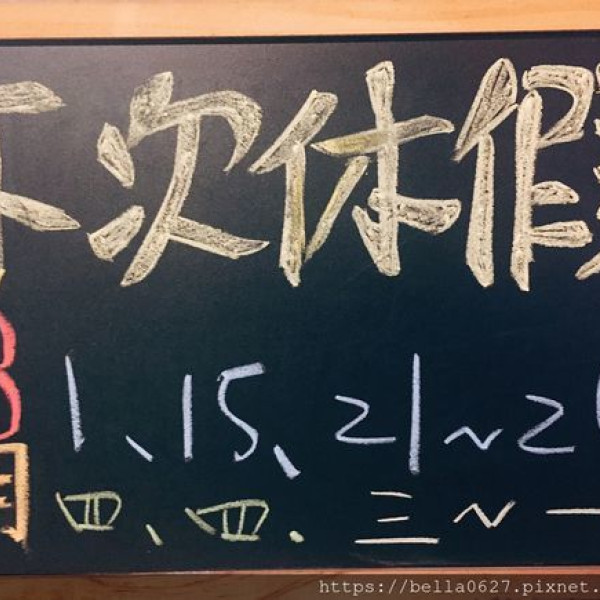 下次休假
8 1、15、21~2
月 四、四、三~一
https://bella0627.pixnet.